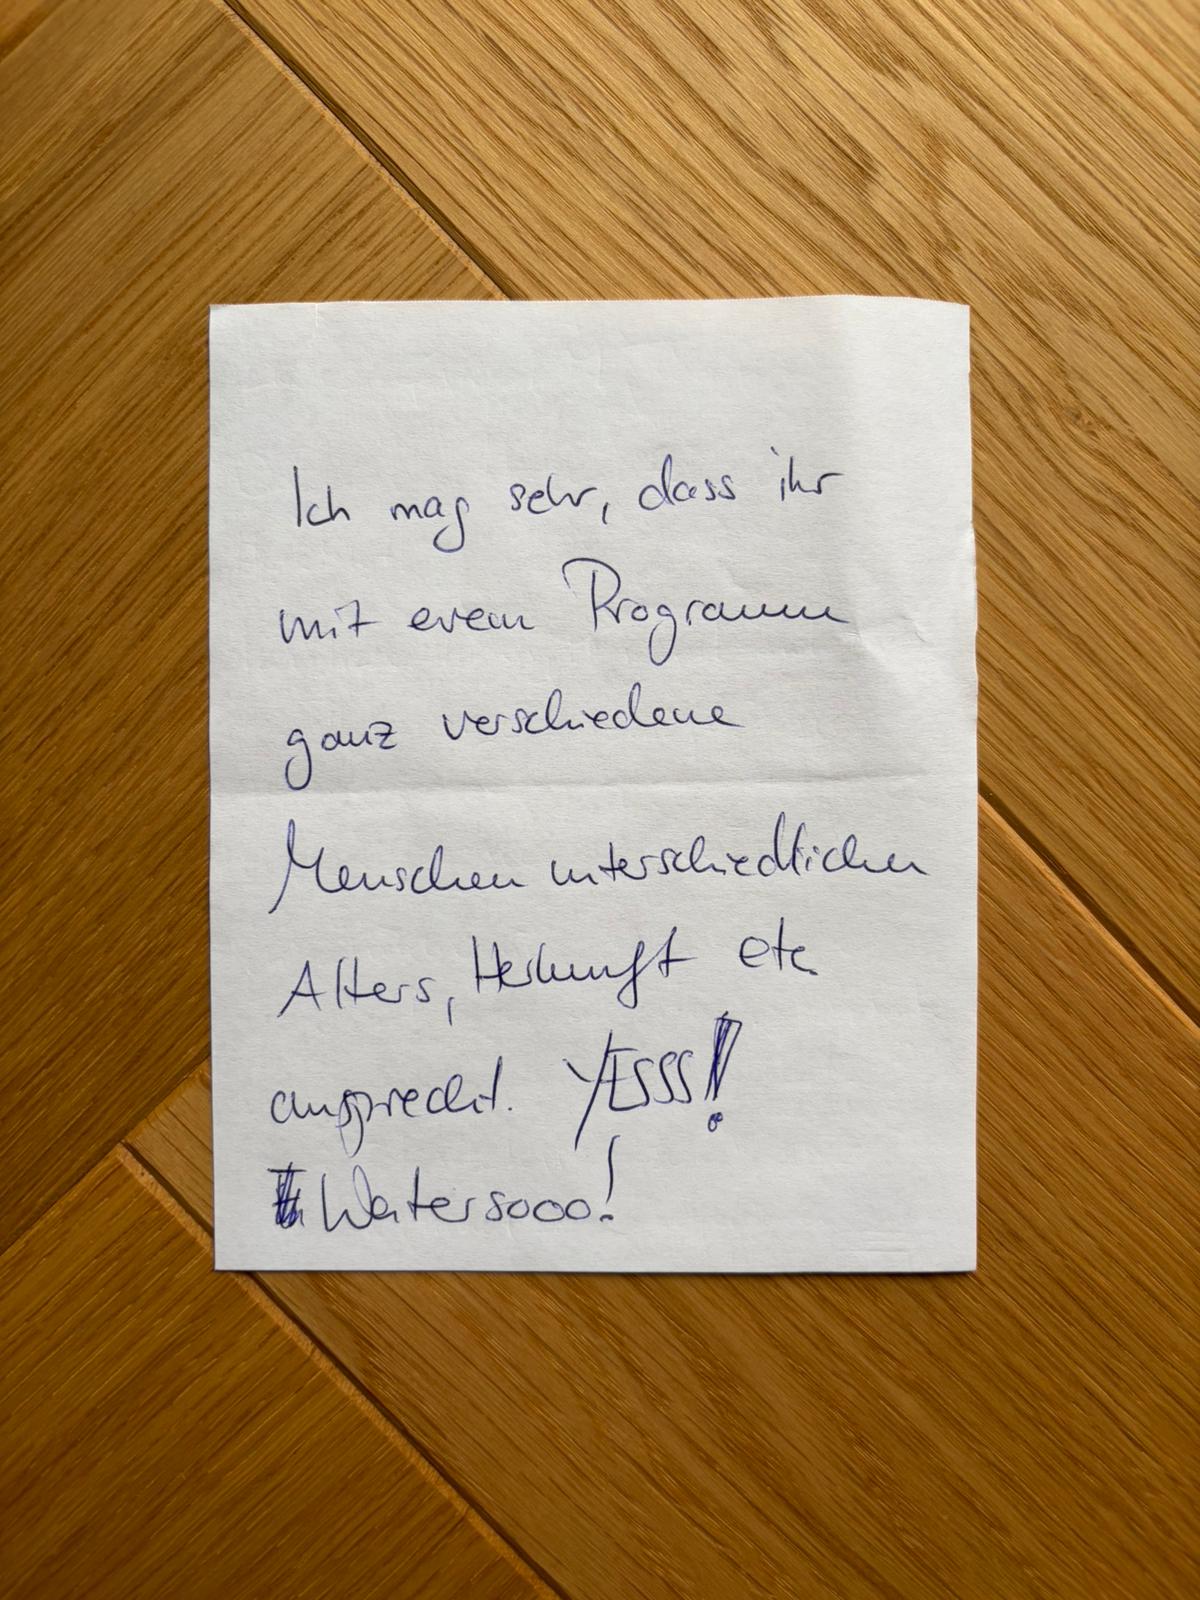 Ich mag sehr, dass ihr
mit eurem Programm
ganz verschiedene
Menschen unterschiedlichen
Alters, Herkunft etc.
ansprecht. YESSS!
Weitersooo!